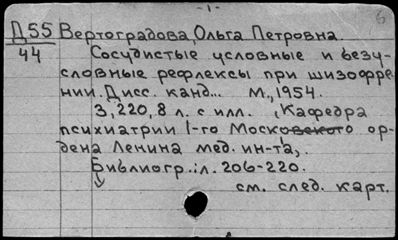 -1-
6
Д55 Вертоградова, Ольга Петровна.
44 Сосудистые условные и безу-
словные рефлексы при шизофре
нии. Дисс. канд... М., 1954.
3, 220, 8 л. с илл. , Кафедра
психиатрии 1-го Московского ор-
дена Ленина мед. ин-та,.
Библиогр.: л. 206-220.
см. след. карт.